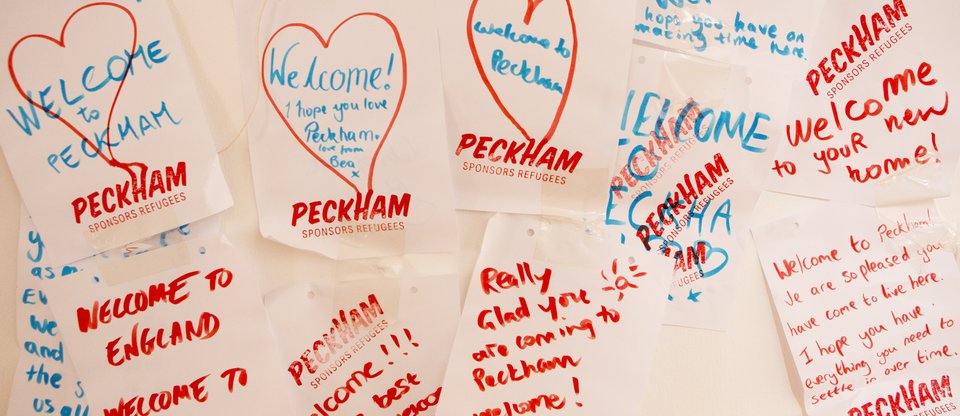 WELCOME
to
PECKHAM
PECKHAM
SPONSORS REFUGEES
Welcome!
I hope you love
Peckham.
love from
Bea
x
PECKHAM
SPONSORS REFUGEES
welcome to
Peckham
PECKHAM
SPONSORS REFUGEES
hope you have an
amazing time here
WELCOME
PECKHAM
PECKHAM
SPONSORS REFUGEES
PECKHAM
SPONSORS REFUGEES
welcome
to your new
home!
and
the
us all
WELCOME TO
ENGLAND
WELCOME TO
PECKHAM
SPONSORS REFUGEES
best
Really
Glad you
are coming to
Peckham
welcome!
Welcome to Peckham!
We are so pleased you
have come to live here.
I hope you have
everything you need to
settle in over time.
PECKHAM